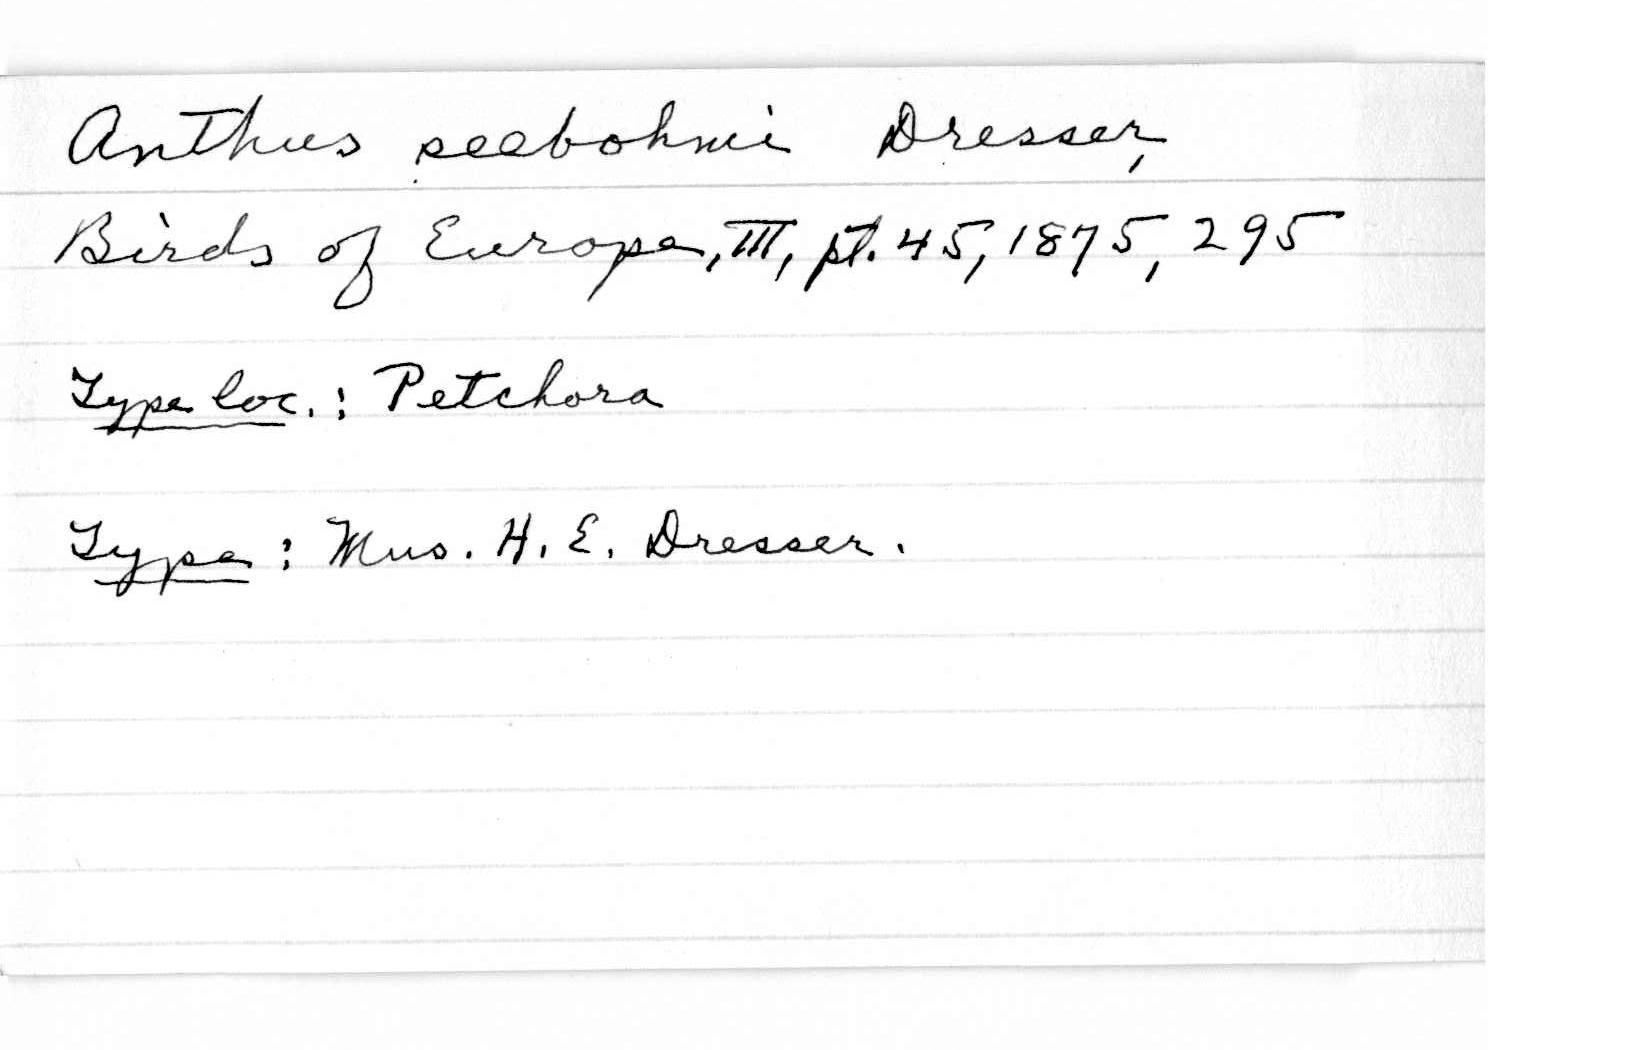 Anthus seebohmi Dresser,
Birds of Europe, III, pt. 45, 1875, 295
Type loc.: Petchora
Type: Mus. H. E. Dresser.